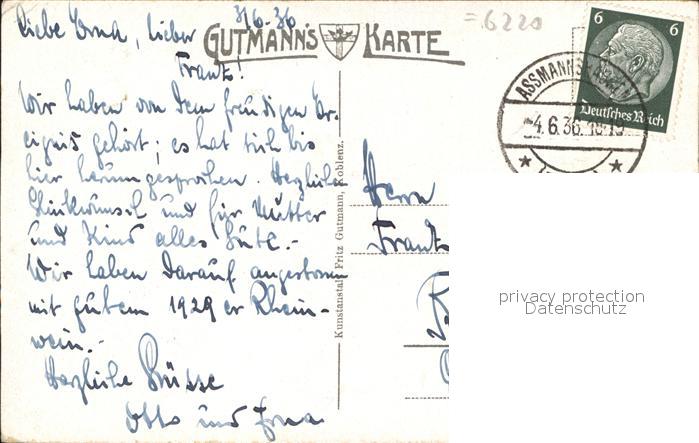 3/6.36.
=6220
Liebe Erna, lieber
Frantz!
GUTMANN'S KARTE
Wir haben von dem freudigen Er-
eignis gehört; es hat sich bis
hier herumgesprochen. Herzlichen
Glückwunsch und für Mutter
und Kind alles Gute.-
Wir haben darauf angestossen
mit gutem 1929er Rhein-
wein.-
Herzliche Grüsse
Otto und Erna
Kunstanstalt Fritz Gutmann, Koblenz.
6 6
Deutsches Reich
ASSMANNSHAUSEN
-4.6.36.
Herrn
Frantz
privacy protection
Datenschutz